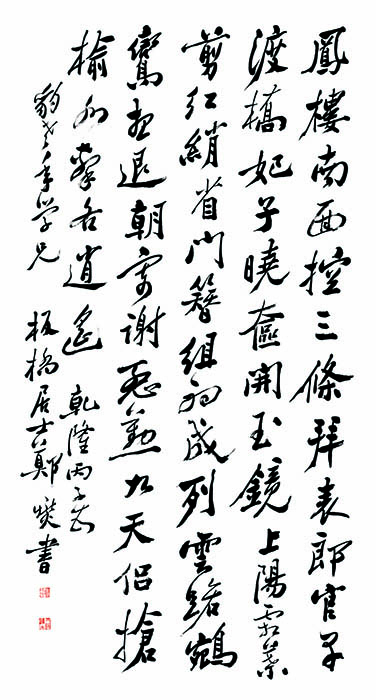 鳳樓南面控三條拜表郎官早
渡橋妃子曉奩開玉鏡上陽霜葉
剪紅綃省門簪組初成列雲路鵷
鸞想退朝寄謝殷勤九天侶搶
榆水擊各逍遙 乾隆丙子
老年学兄 板橋居士鄭燮書